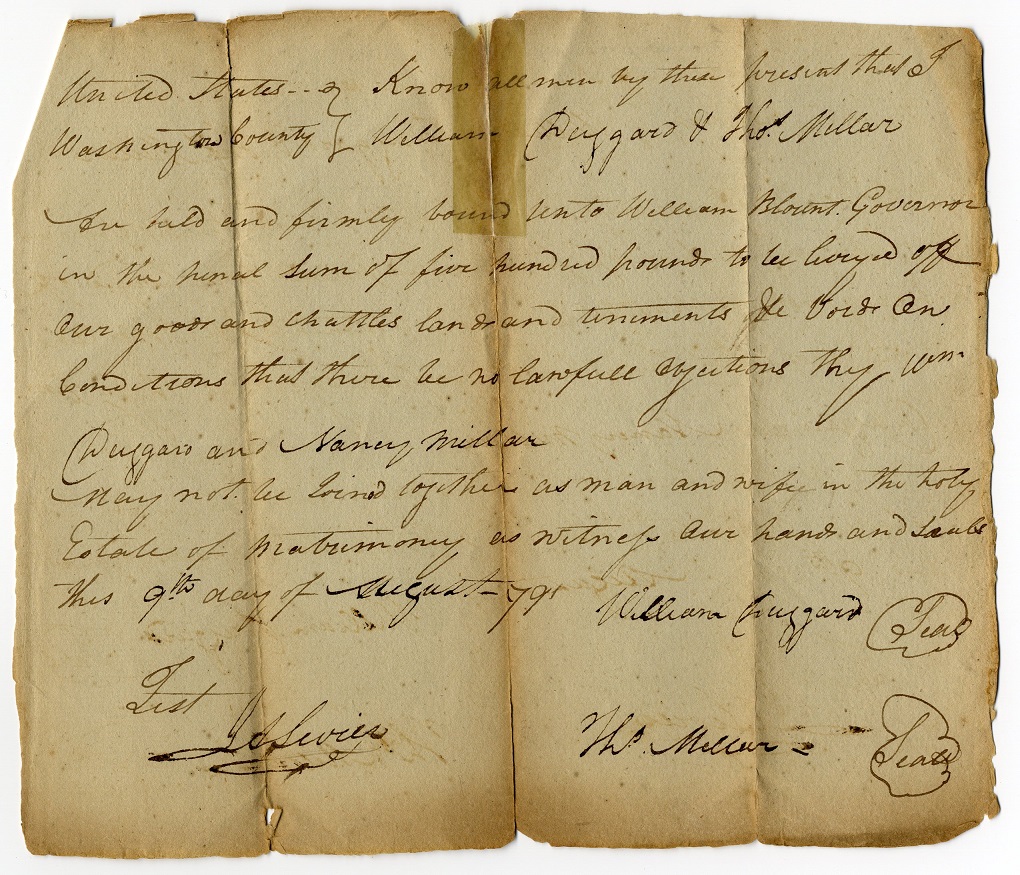 United States -- } Know all men by these present that I
Washington County } William Duggard & Thos. Millar
Are held and firmly bound unto William Blount Governor
in the penal sum of five hundred pounds to be levyed off
Our goods and chattles lands and teniments &c Void On
Conditions that there be no lawfull Objections they Wm.
Duggard and Nancy Millar
May not be Joined together as man and wife in the holy
Estate of Matrimoney as witness our hands and Seals
this 9th day of August - 791
William Duggard Seal
Test
Js Sevier
Ths. Millar - Seal